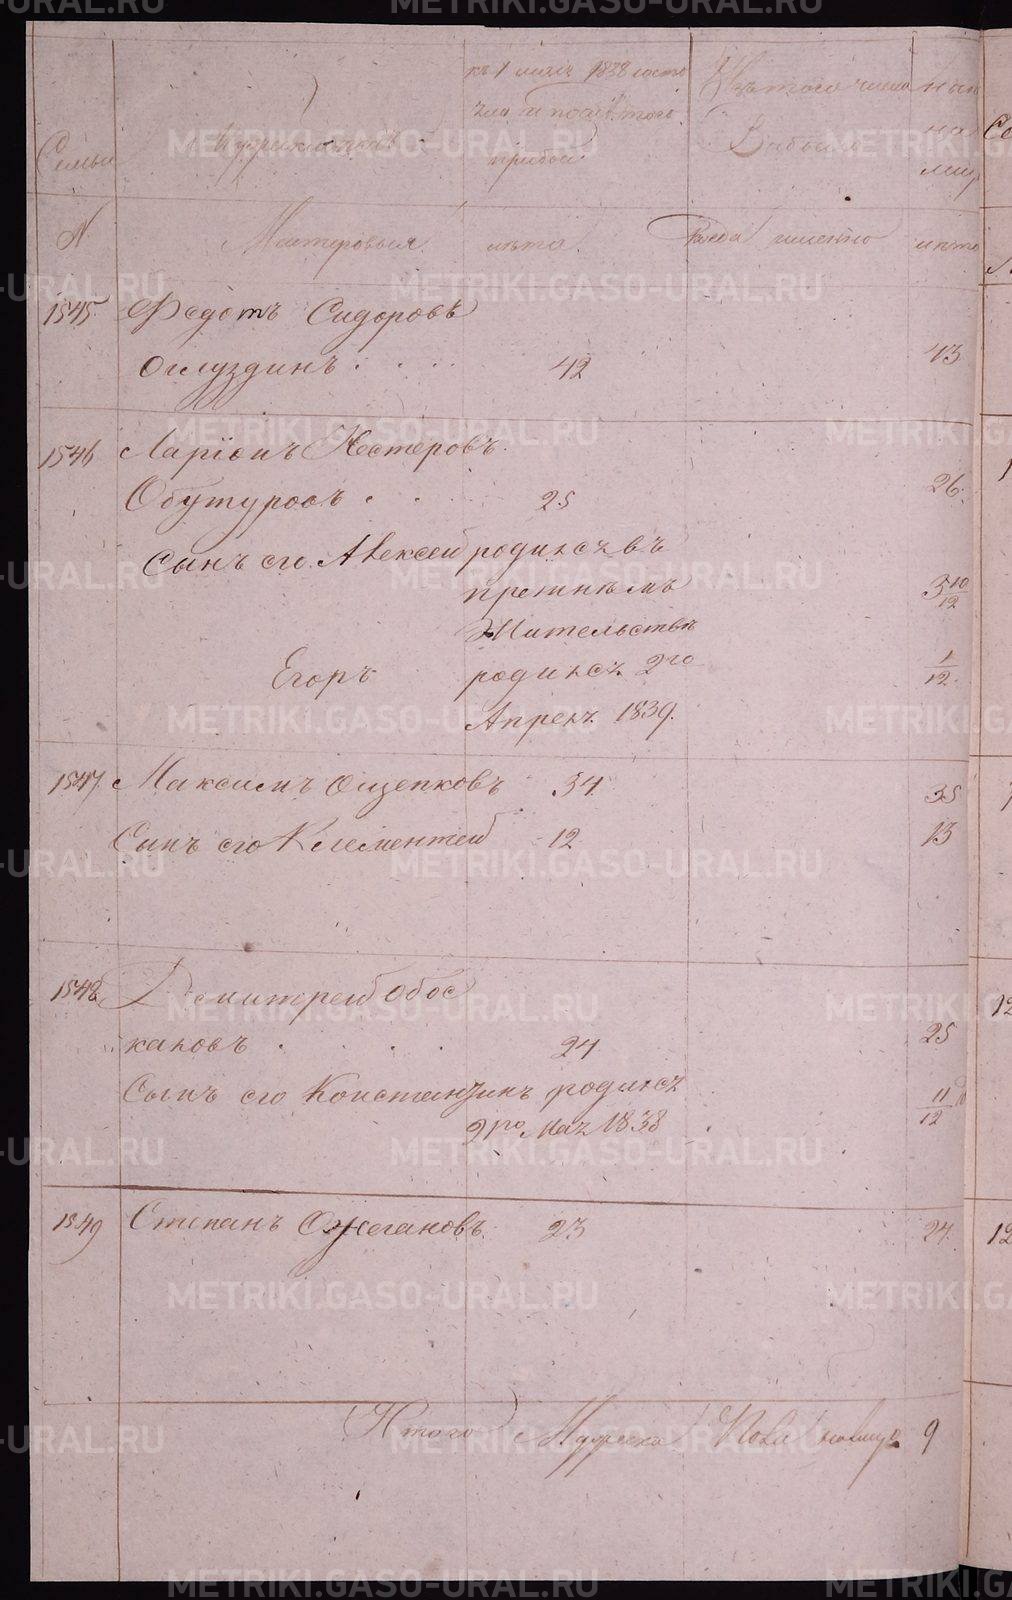 Семьи
Мужескъ полъ
къ 1 маія 1838 состо
яло и после того
прибыло
Изъ того числа
Выбыло
ныне
на
лицо
№
Мастеровыя
лѣта
Когда именно
лѣта
1545. Федотъ Сидоровъ
Оглуздинъ . . . . 42 43
1546 Ларіонъ Нестеровъ.
Обутуровъ . . 25 26.
Сынъ его Алексей родился въ
прежнемъ 3 10/12
Жительстве
Егоръ родился 2го 1/12.
Апреля 1839.
1547. Максимъ Ощепковъ 34 35
Сынъ его Клементей 12 13
1548. Демитрей Обос
каловъ . . . . 24 25
Сынъ его Констентинъ родился 11/12
2го Мая 1838
1549 Степанъ Ожегановъ. 23 24.
Итого Мужеска Пола налицо 9
METRIKI.GASO-URAL.RU